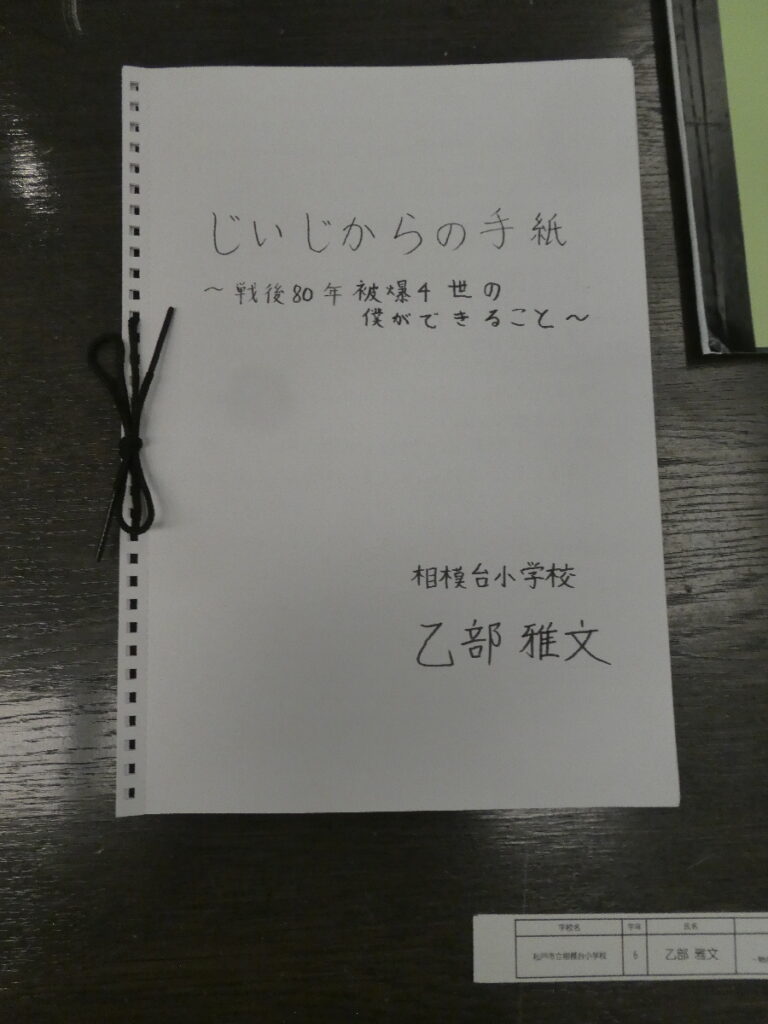 じいじからの手紙
～戦後80年被爆4世の
僕ができること～
相模台小学校
乙部 雅文
学校名 学年 氏名
松戸市立相模台小学校 6 乙部 雅文